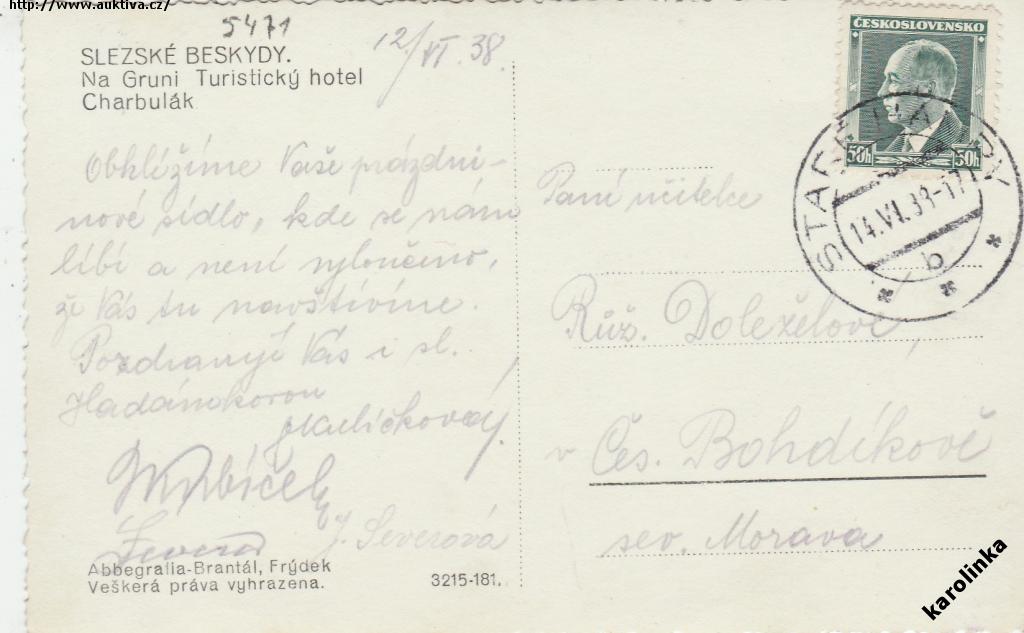 http://www.auktiva.cz/
5471
12/VI.38.
SLEZSKÉ BESKYDY.
Na Gruni Turistický hotel
Charbulák
Obhlížíme Vaše prázdni-
nové sídlo, kde se nám
líbí a není vyloučeno,
že Vás tu navštívíme.
Pozdravují Vás i sl.
Hadámkovou
J. Severová
Abbegrafia-Brantál, Frýdek
Veškerá práva vyhrazena.
3215-181.
ČESKOSLOVENSKO
50h 50h
STARÉ HAMRY
14.VI.38-17
b
Paní učitelce
Růž. Doleželové,
v Čes. Bohdíkově
sev. Morava
karolinka